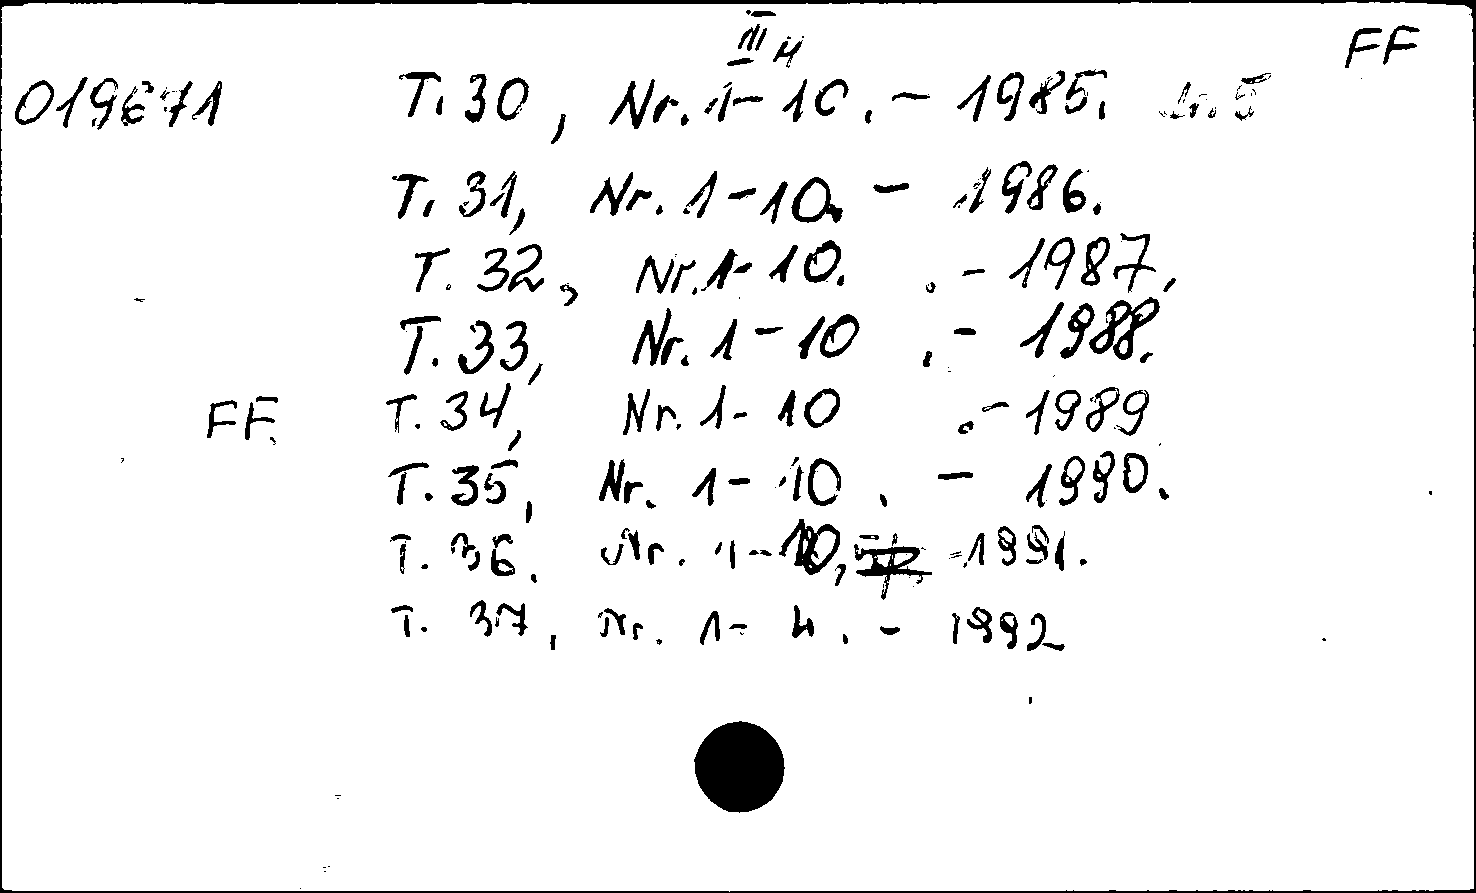 III 4 FF
019671 T. 30, Nr. 1-10. - 1985. Nr. 5
T. 31, Nr. 1-10. - 1986.
T. 32, Nr. 1-10. . - 1987.
T. 33, Nr. 1-10 . - 1988.
FF. T. 34, Nr. 1-10 . - 1989
T. 35, Nr. 1-10 . - 1990.
T. 36. Nr. 1-10, - 1991.
T. 37, Nr. 1-4. - 1992